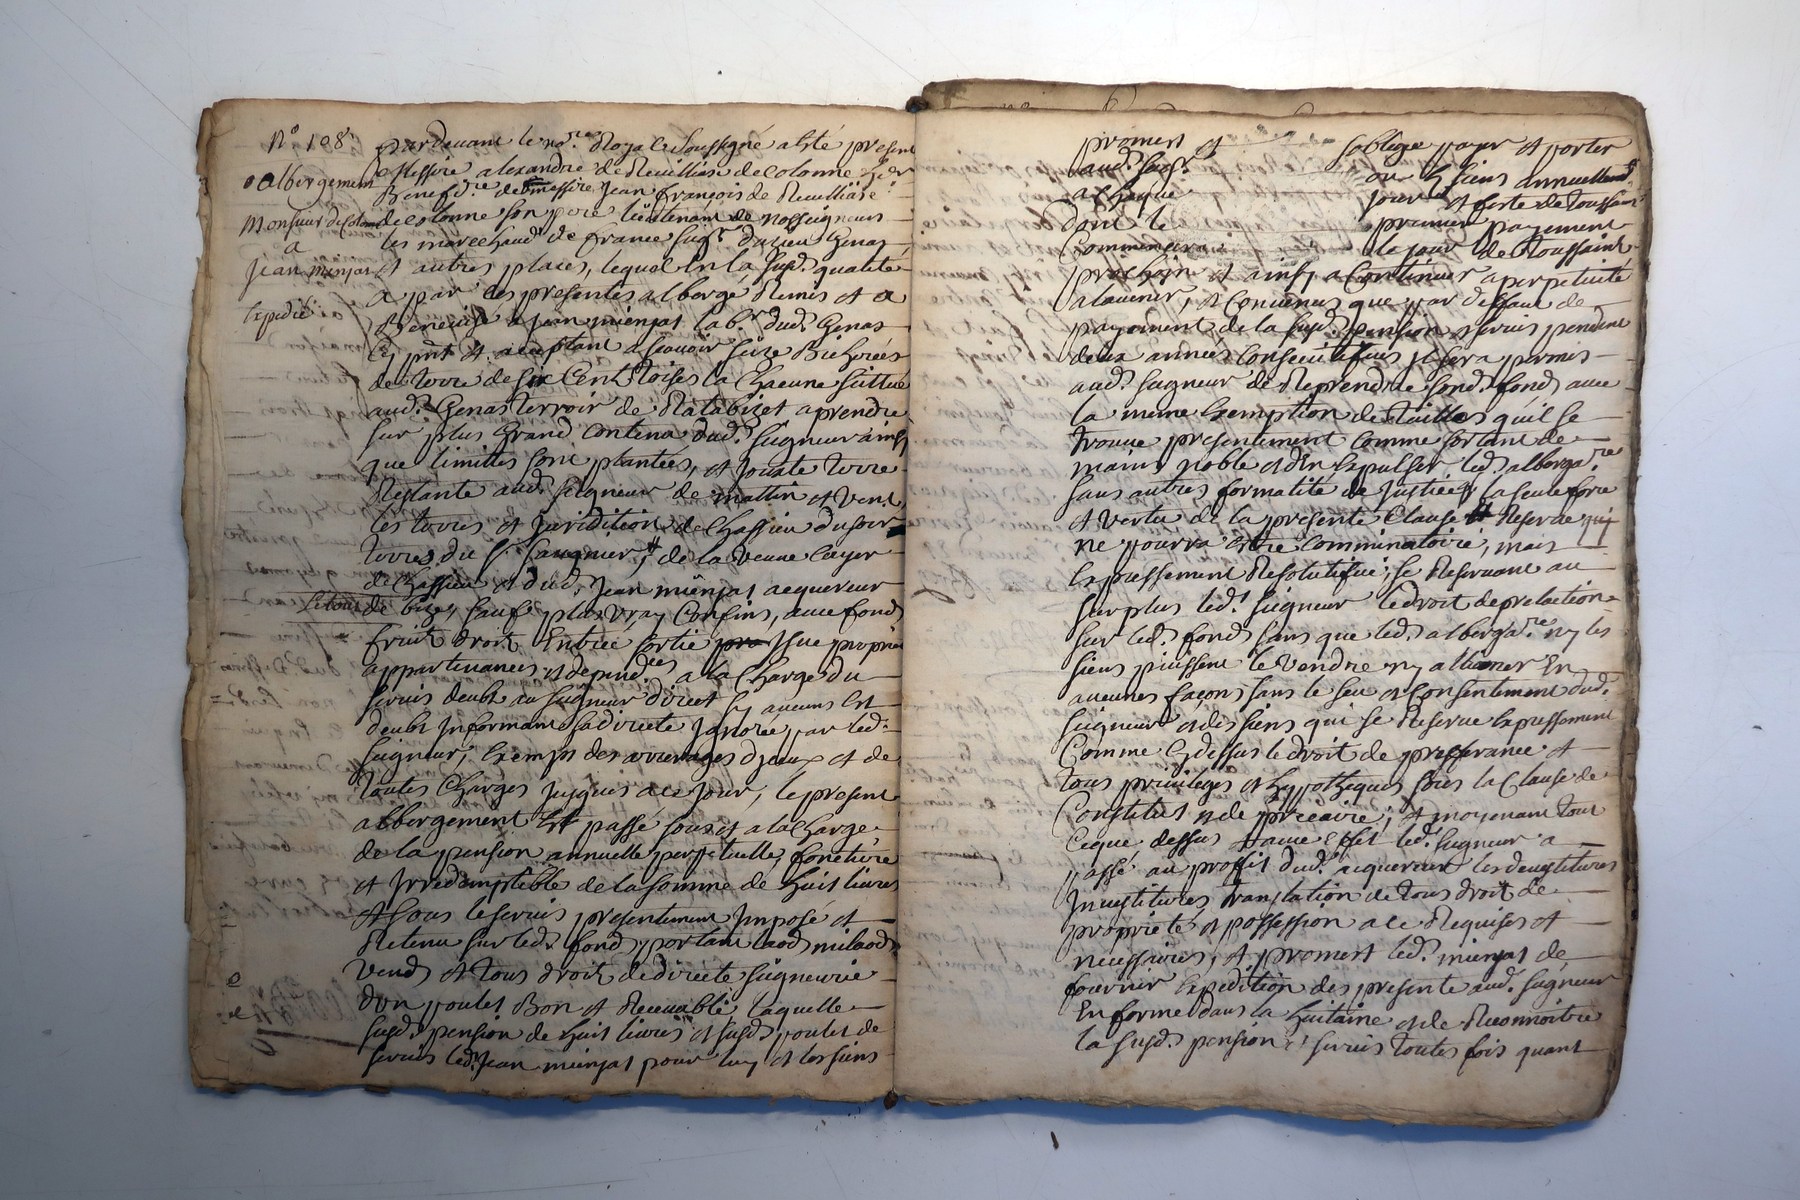 N.º 108
albergement
Monsieur de Colonne
a
Jean Mienjat
Expedié
pardevant le no.re Royal soussigné a été present
Messire alexandre de Revilliasc de colonne
Benef.re de messire jean françois de Revilliasc
de colonne son pere lieutenant de nosseigneurs
les marechaud de france seig.r dudieu Genas
et autres places, lequel en la susd. qualité
a par ces presentes albergé Remis et a
a jean mienjat lab.r dud. Genas
cy pnt et aceptant a scavoir seize Bicherées
de terre de six Cent Toises la Chacune scittué
aud. Genas terroir de Ratabizet a prendre
sur plus grand contenu dud. seigneur ainsy
que limittes sont plantées, et jouxte terre
Restante aud. seigneur de mattin et vent,
les terres et juridition de chassieu du soir
terres du s.r saugnier, # de la veuve cayer
de chassieu et dud. jean mienjat acquereur
de bize, sauf plus vray confins, avec fond
fruit droit Entrée sortie issue proprie
appartenances et depend.ces a la Charge du
servis deubt au seigneur direct sy aucuns Est
deubt Informant sa directe Ignorée par led.
seigneur, Exempt des arrerages d'jceux et de
toutes Charges jusques a ce jour, le present
albergement Est passé sous et a la charge
de la pension annuelle perpetuelle, fonciere
et jrredemptible de la somme de huit livres
et sous le servis presentement Imposé et
Retenu sur led. fond, portant laods milaods
vends et tous droit de directe seigneurie
d'un poulet Bon et Recevable laquelle
susd. pension de huit livres et susd. poulet de
servis led. jean mienjat pour luy et les siens
promet et s'oblige payer et porter
aud. seig.r ou és siens annuellem.t
a chaque jour et feste de toussaint
dont le premier payement
Commencera le jour de toussaint
prochain et ainsy a Continuer a perpetuité
alavenir, et Convenus que par deffaut de
payement de la susd. pension et servis pendant
deux années consecutifves jl sera permis
aud. seigneur de Reprendre sond. fond, avec
la meme Exemption de tailles qu'il se
trouve presentement comme sortant de
mains noble et d'En Expulser led. alberga.re
sans autres formalité de justice, la seule force
et vertu de la presente Clause # Reserve qui
ne pourra Estre comminatoire, mais
Expressement Resolutifve, se Reservant au
surplus led. seigneur le droit de prelaction
sur led. fond, sans que led. alberga.re ny les
siens puissent le vendre ny alliener En
aucunes façons sans le seu et Consentement dud.
seigneur et des siens qui se Reserve Expressement
Comme Cy dessus le droit de prefferance et
tous privileges et hypotheques sous la Clause de
Constitut et de precaire, et moyenant tout
Ceque dessus led. seigneur a
passé au proffit dud. acquereur les devestitures
jnvestitures translation de tous droit de
proprieté et possession a ce Requises et
necessaires, et promet led. mienjat de
fournir Expedition des presente aud. seigneur
En forme dans la huitaine et de Reconnoitre
la susd. pension et servis toutes fois quant